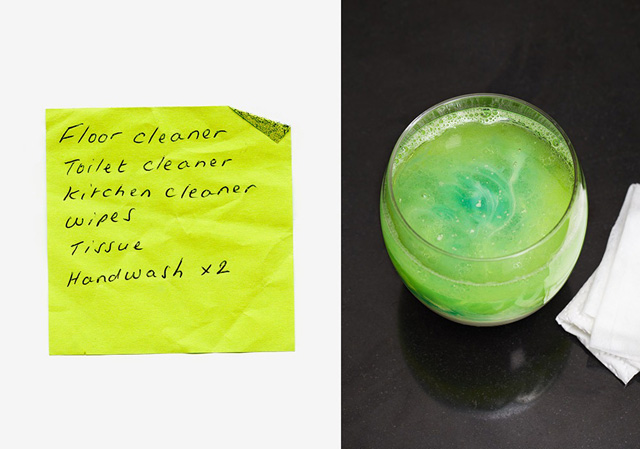 Floor cleaner
Toilet cleaner
Kitchen cleaner
wipes
Tissue
Handwash x2